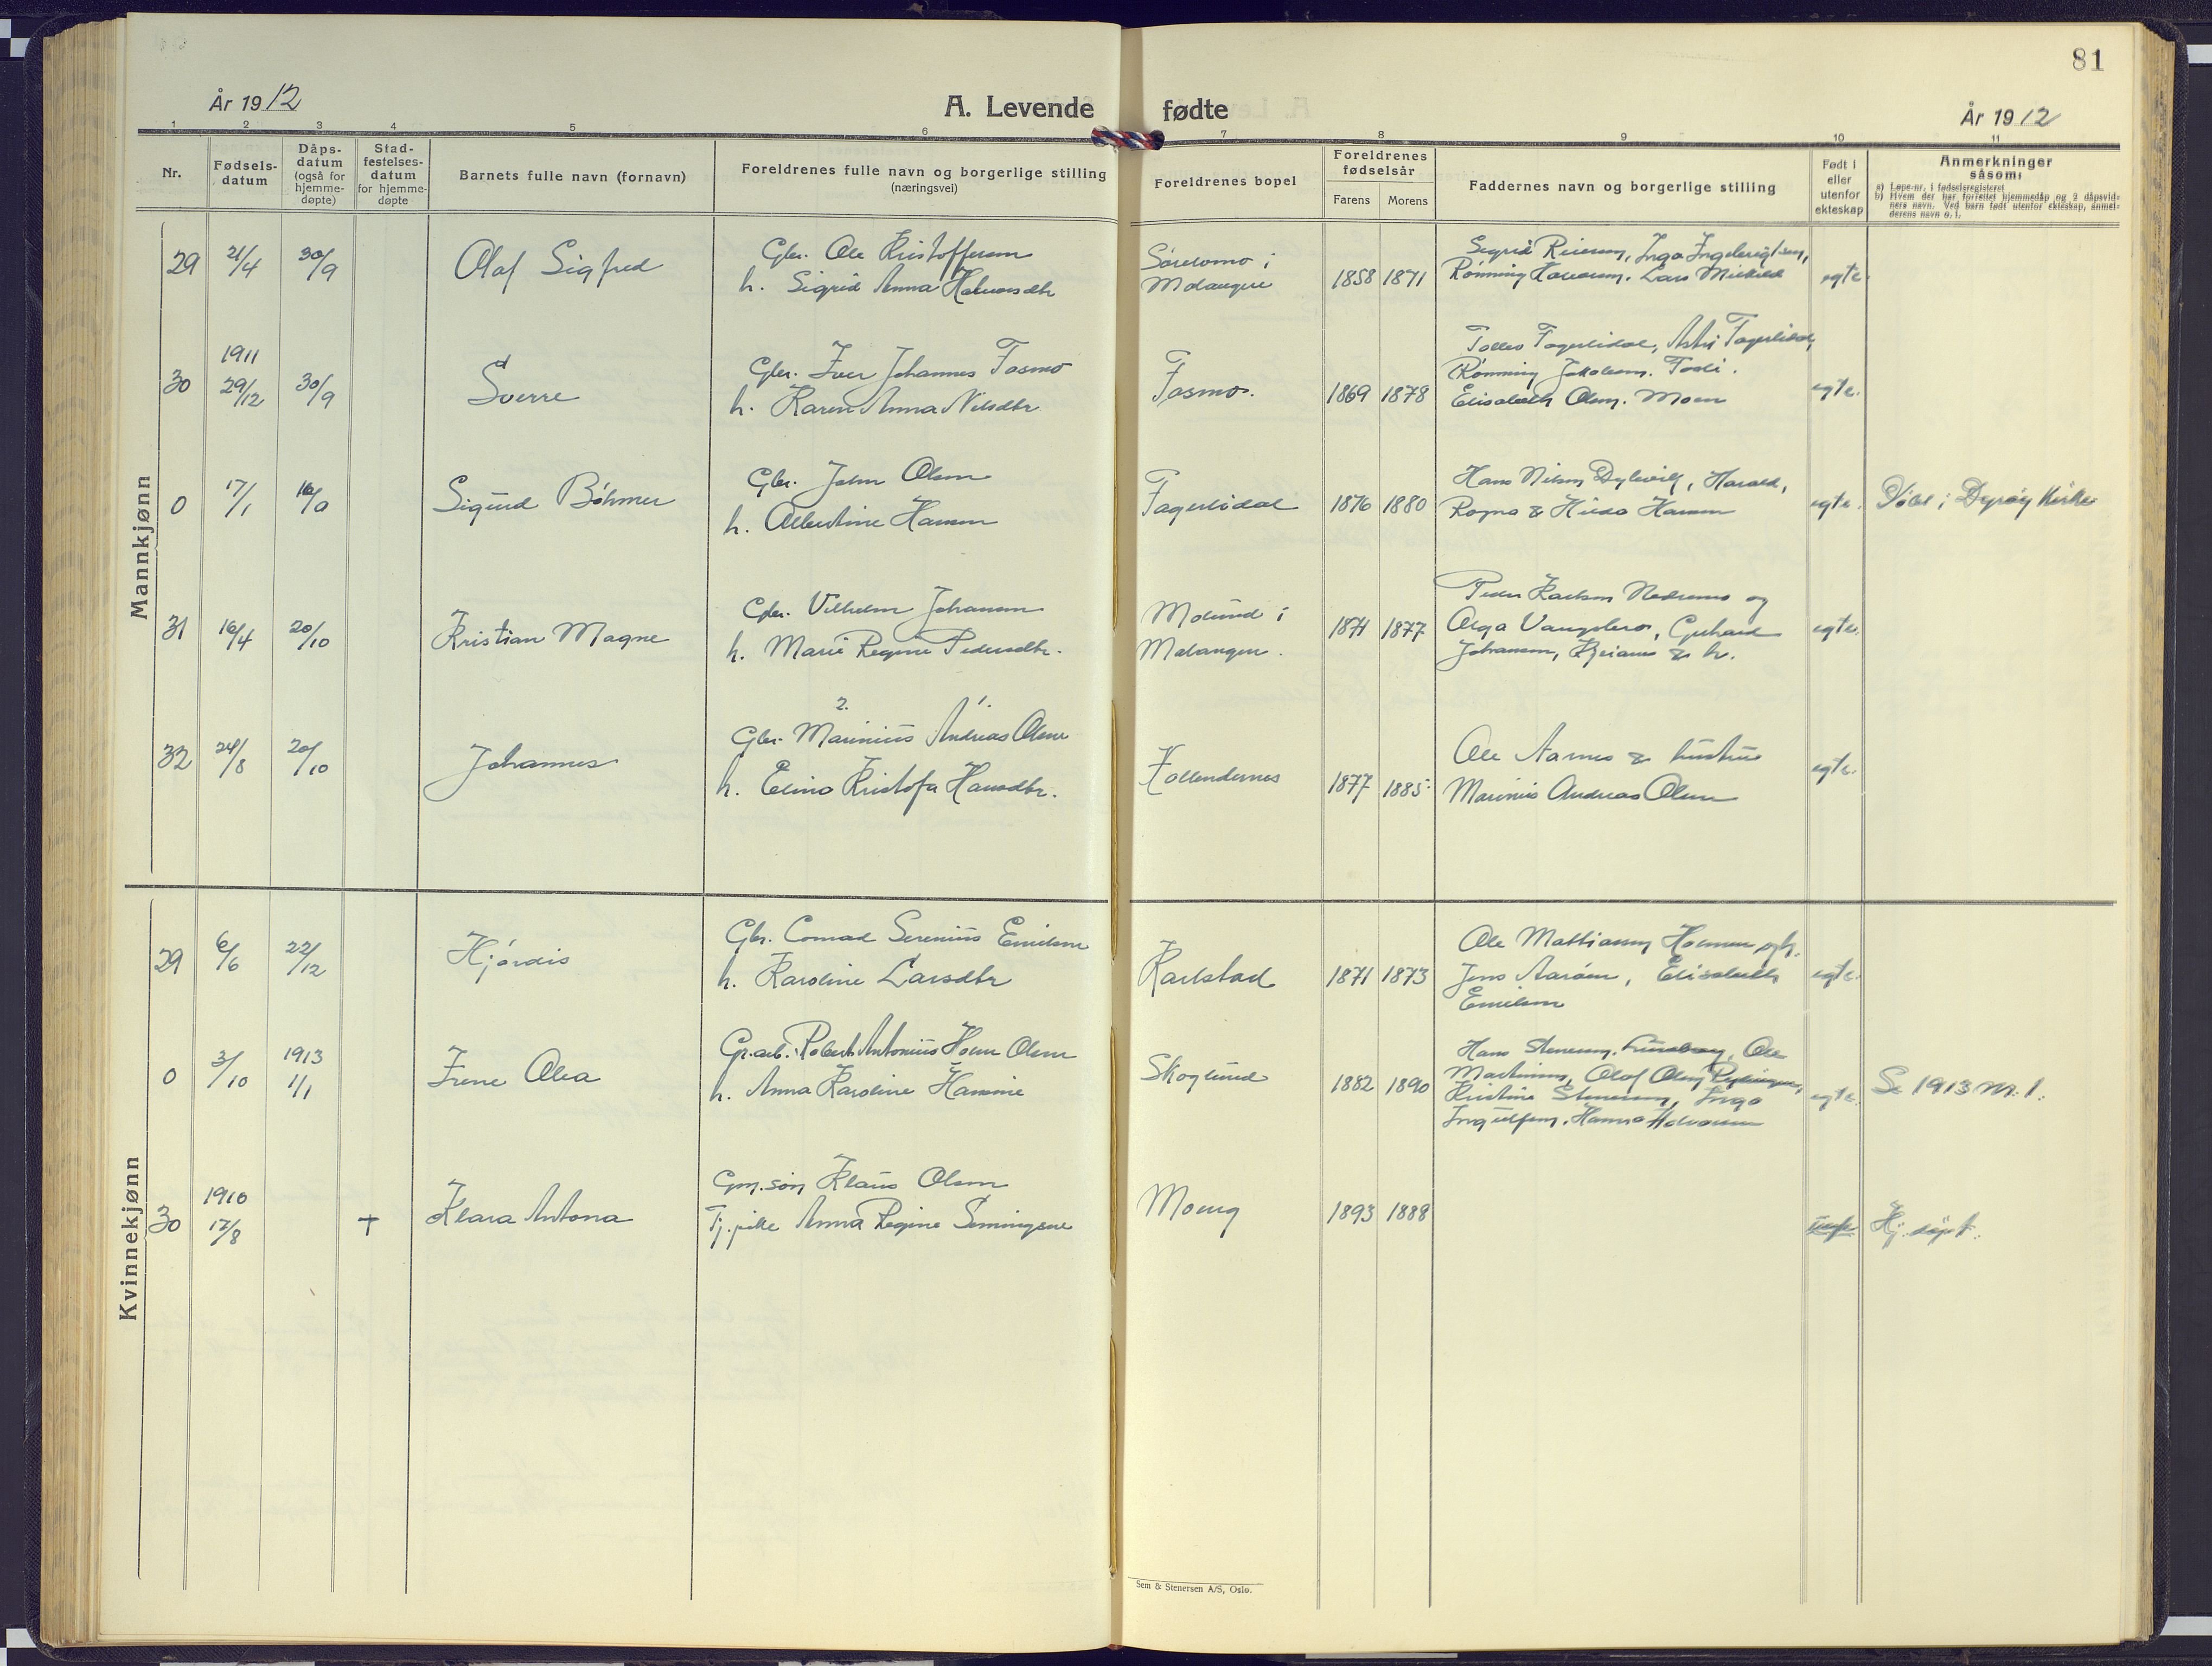 81
År 1912
A. Levende fødte
År 1912
1 2 3 4 5 6 7 8 9 10 11
Nr.
Fødsels-
datum
Dåps-
datum
(også for
hjemme-
døpte)
Stad-
festelses-
datum
for hjemme-
døpte
Barnets fulle navn (fornavn)
Foreldrenes fulle navn og borgerlige stilling
(næringsvei)
Foreldrenes bopel
Foreldrenes
fødselsår
Farens Morens
Faddernes navn og borgerlige stilling
Født i
eller
utenfor
ekteskap
Anmerkninger
såsom:
a) Løpe-nr. i fødselsregisteret
b) Hvem der har forrettet hjemmedåp og 2 dåpsvid-
ners navn. Ved barn født utenfor ekteskap, anmel-
derens navn o. l.
Mannkjønn
29 21/4 30/9 Olaf Sigfred
Gbr. Ole Kristoffersen
h. Sigrid Anna Halvorsdtr
Søreomo i
Malangen
1858 1871
Sigrid Reiersen, Inga Ingebrigtsen,
Rønning Lars
egte
30 1911
29/12 30/9 Sverre
Gbr. Iver Johannes Fosmo
h. Karen Anna Nilsdtr
Fosmo.
1869 1878
Tollev Fagerlidal, Fagerlidal,
Rønning Jakobsen.
Elisabeth Olsen. Moen
egte.
0 17/1 Sigurd Bøhmer
Gbr. John Olsen
h. Albertine Hansen
Fagerlidal
1876 1880
Hans Nilsen, Harald,
Ragna & Hilda Hansen
egte. Døbt i Dyrøy Kirke
31 16/4 20/10 Kristian Magne
Gbr. Vilhelm Johansen
h. Marie Regine Pedersdtr.
Molund i
Malangen.
1871 1877
Peder Karlsen Nedremo og
Olga, Gerhard
Johansen, & h.
egte.
32 24/8 20/10 Johannes
2. 1.
Gbr. Marinius Andreas Olsen
h. Elina Kristofa Hansdtr.
Kollendernes
1877 1885
Ole Aarnes & hustru
Marinius Andreas Olsen
egte.
Kvinnekjønn
29 6/6 22/12 Hjørdis
Gbr. Conrad Serenius Emilsen
h. Karoline Larsdtr
Karlstad
1871 1873
Ole Mathiassen Holmen og h.
Jens, Elisabeth
Emilsen
egte.
0 3/10 1913
1/1 Irene Olea
Gr.arb. Robert Antonius Olsen
h. Anna Karoline
Skoglund
1882 1890
Hans Stenersen, Ole
Martinsen, Olaf Olsen
Kristine Stenersen, Inga
Ingulfsen, Hanna
egte. Se 1913 nr. 1.
30 1910
17/8 + Klara Antona
Gm.søn Klaus Olsen
Tj.pike Anna Regine Simmingsen
Moeng
1893 1888
uegte. Hj. døpt.
Sem & Stenersen A/S, Oslo.